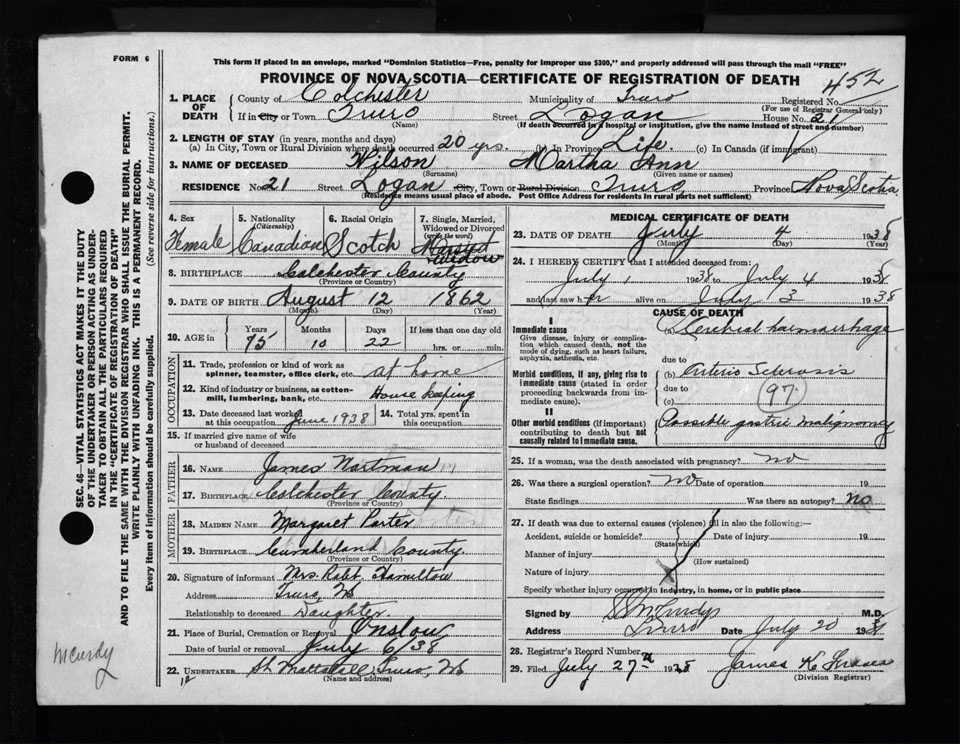 FORM 6
This form if placed in an envelope, marked "Dominion Statistics—Free, penalty for improper use $300," and properly addressed will pass through the mail "FREE"
PROVINCE OF NOVA SCOTIA—CERTIFICATE OF REGISTRATION OF DEATH
452
1. PLACE OF DEATH County of Colchester Municipality of Truro Registered No.
(For use of Registrar General only)
If in City or Town Truro Street Logan House No. 21
(Name) (If death occurred in a hospital or institution, give the name instead of street and number)
2. LENGTH OF STAY (in years, months and days)
(a) In City, Town or Rural Division where death occurred 20 yrs. (b) In Province Life. (c) In Canada (if immigrant)
3. NAME OF DECEASED Wilson Martha Ann
(Surname) (Given name or names)
RESIDENCE No. 21 Street Logan City, Town or Rural Division Truro Province Nova Scotia
(Residence means usual place of abode. Post Office Address for residents in rural parts not sufficient)
4. Sex Female
5. Nationality (Citizenship) Canadian
6. Racial Origin Scotch
7. Single, Married, Widowed or Divorced (write the word) Widow
8. BIRTHPLACE Colchester County
(Province or Country)
9. DATE OF BIRTH August 12 1862
(Month) (Day) (Year)
10. AGE in Years 75 Months 10 Days 22 If less than one day old hrs. or min.
OCCUPATION
11. Trade, profession or kind of work as spinner, teamster, office clerk, etc. at home
12. Kind of industry or business, as cotton-mill, lumbering, bank, etc. House keeping
13. Date deceased last worked at this occupation June 1938
14. Total yrs. spent in this occupation
15. If married give name of wife or husband of deceased
FATHER
16. NAME James Wortman
17. BIRTHPLACE Colchester County.
(Province or Country)
MOTHER
18. MAIDEN NAME Margaret Porter
19. BIRTHPLACE Cumberland County.
(Province or Country)
20. Signature of informant Mrs. Robt. Hamilton
Address Truro, NS
Relationship to deceased Daughter.
21. Place of Burial, Cremation or Removal Onslow
Date of burial or removal July 6/38
22. UNDERTAKER Truro, NS
(Name and address)
MEDICAL CERTIFICATE OF DEATH
23. DATE OF DEATH July 4 1938
(Month) (Day) (Year)
24. I HEREBY CERTIFY that I attended deceased from:
July 1 1938 to July 4 1938
and last saw her alive on July 3 1938
CAUSE OF DEATH
I
Immediate cause
Give disease, injury or complication which caused death, not the mode of dying, such as heart failure, asphyxia, asthenia, etc.
(a) Cerebral haemorrhage
due to
Morbid conditions, if any, giving rise to immediate cause (stated in order proceeding backwards from immediate cause).
(b) Arterio Sclerosis
due to
(c)
97
II
Other morbid conditions (if important) contributing to death but not causally related to immediate cause.
Possible gastric malignancy
25. If a woman, was the death associated with pregnancy? no
26. Was there a surgical operation? no Date of operation 19
State findings Was there an autopsy? no
27. If death was due to external causes (violence) fill in also the following:—
Accident, suicide or homicide? Date of injury 19
(State which)
Manner of injury
(How sustained)
Nature of injury
Specify whether injury occurred in industry, in home, or in public place
Signed by McCurdy M.D.
Address Truro Date July 20 1938
28. Registrar's Record Number
29. Filed July 27th 1938 James K.
(Division Registrar)
SEC. 46—VITAL STATISTICS ACT MAKES IT THE DUTY
OF THE UNDERTAKER OR PERSON ACTING AS UNDERTAKER TO OBTAIN ALL THE PARTICULARS REQUIRED
IN THE "CERTIFICATE OF REGISTRATION OF DEATH"
AND TO FILE THE SAME WITH THE DIVISION REGISTRAR WHO SHALL ISSUE THE BURIAL PERMIT.
WRITE PLAINLY WITH UNFADING INK. THIS IS A PERMANENT RECORD.
Every item of information should be carefully supplied. (See reverse side for instructions.)
McCurdy